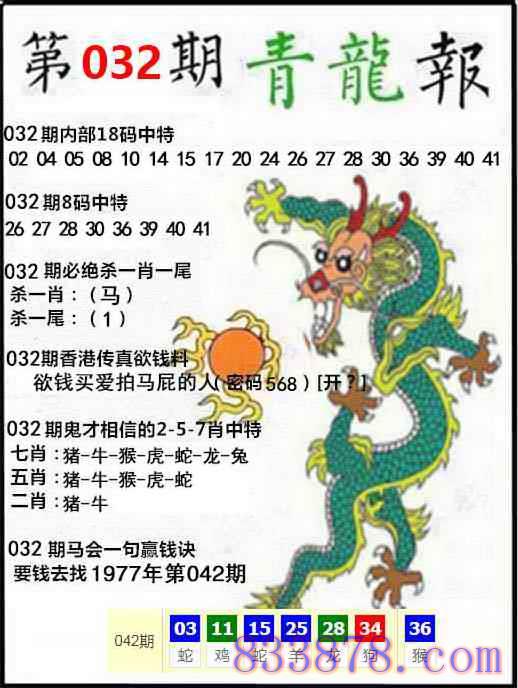 第032期 青龍報
032期内部18码中特
02 04 05 08 10 14 15 17 20 24 26 27 28 30 36 39 40 41
032期8码中特
26 27 28 30 36 39 40 41
032 期必绝杀一肖一尾
杀一肖：（马）
杀一尾：（1）
032期香港传真欲钱料
欲钱买爱拍马屁的人(密码568)[开？]
032期鬼才相信的2-5-7肖中特
七肖：猪-牛-猴-虎-蛇-龙-兔
五肖：猪-牛-猴-虎-蛇
二肖：猪-牛
032 期马会一句赢钱诀
要钱去找1977年第042期
042期 03 11 15 25 28 34 36
蛇 鸡 蛇 羊 龙 狗 猴
833878.com